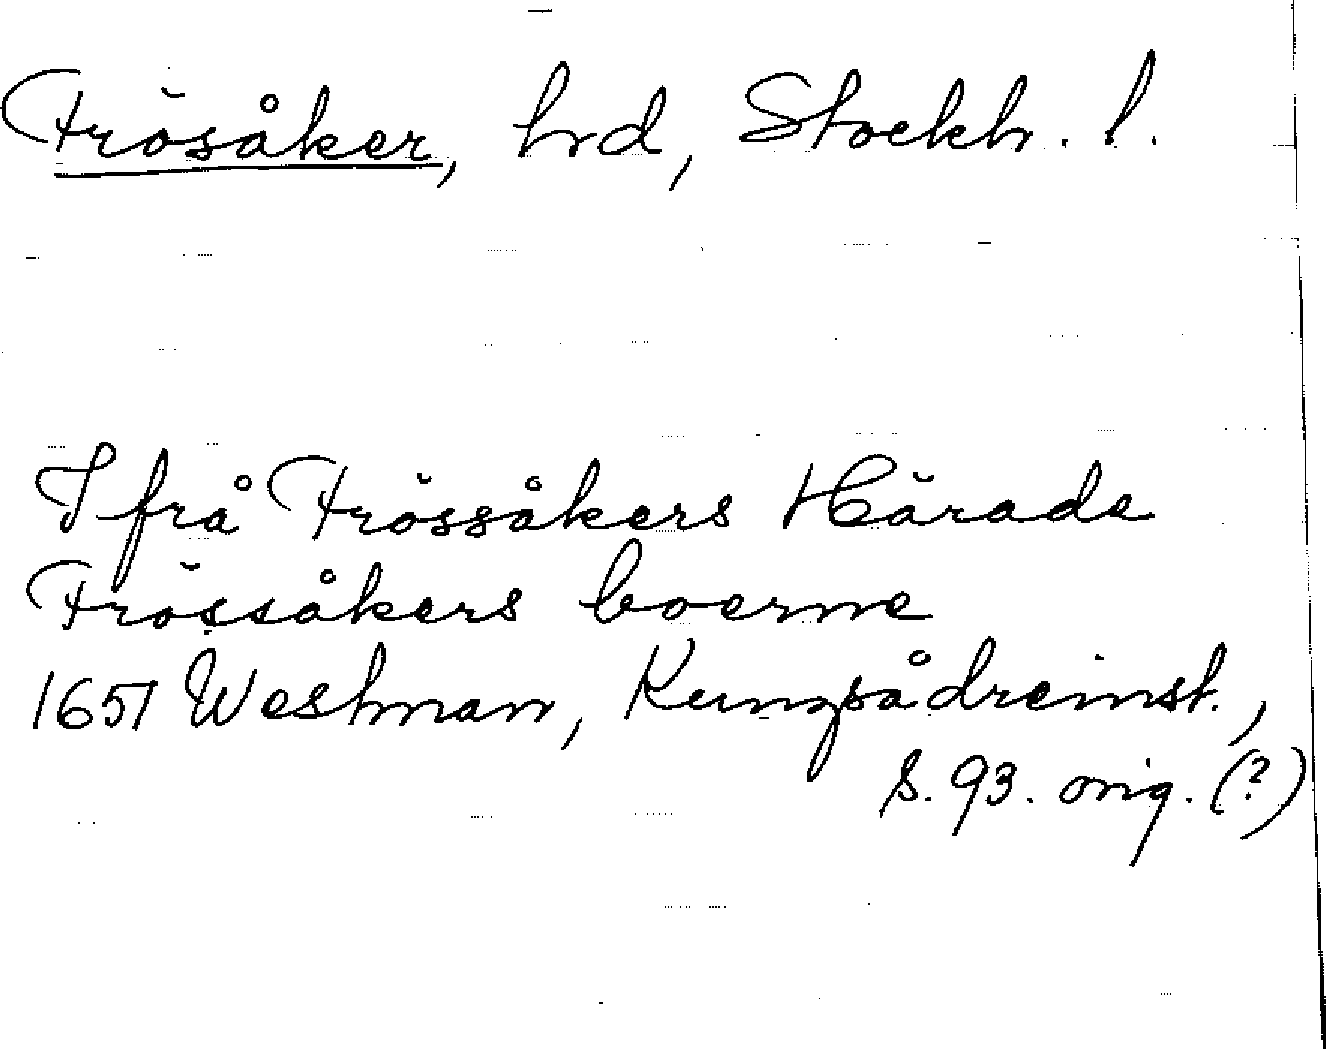 Frösåker, hrd, Stockh. l.
I frå Frössåkers Härade
Frössåkers boerne
1651 Westman, Kungsådreinst.,
s. 93. orig. (?)